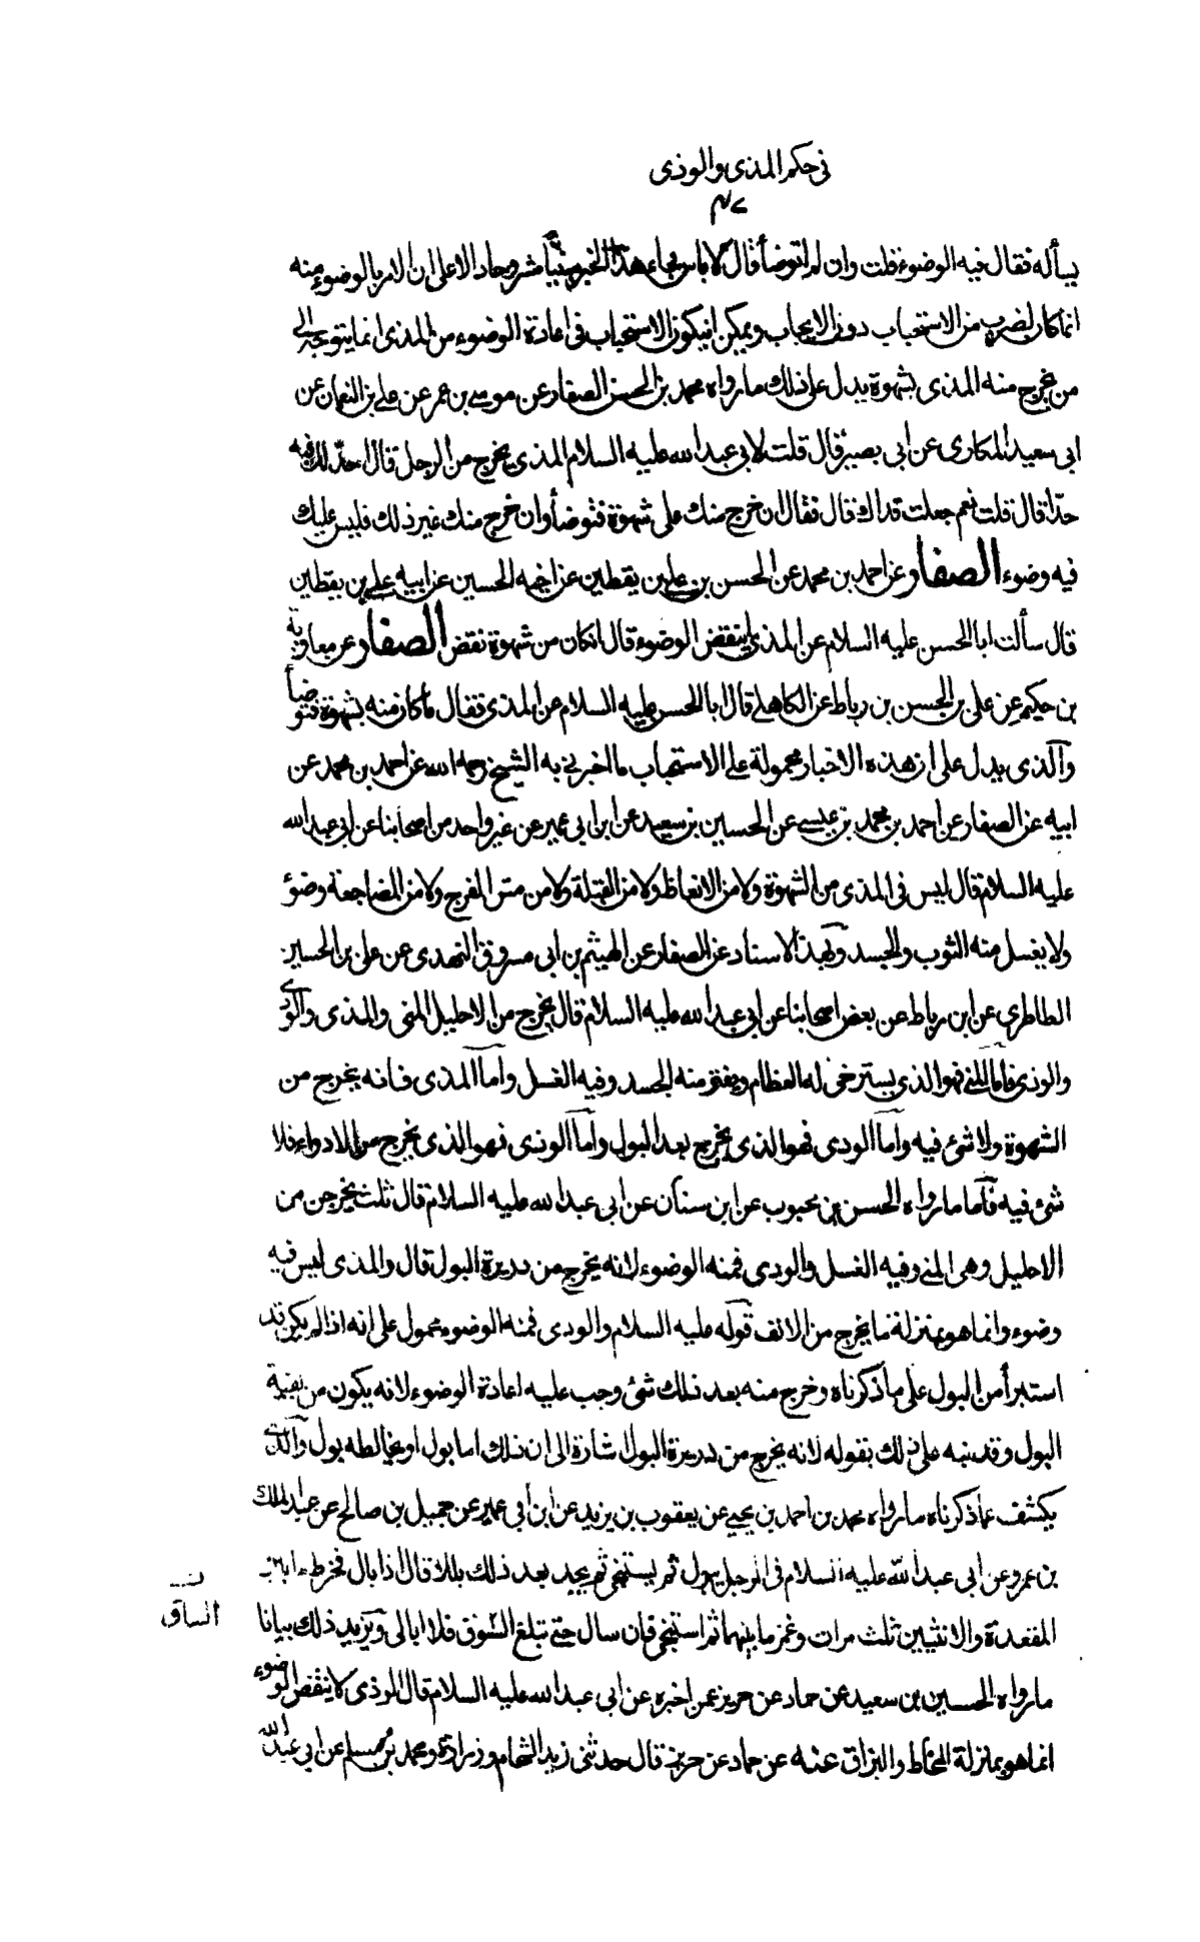 في حكم المذى والوذى
يسأله فقال فيه الوضوء قلت وان لم اتوضأ قال لا باس فجاء هذا الخبر مبينا مشروحا دالا على ان الامر بالوضوء منه
انما كان لضرب من الاستحباب دون الايجاب ويمكن ان يكون الاستحباب في اعادة الوضوء من المذى انما يتوجه الى
من يخرج منه المذى بشهوة يدل على ذلك ما رواه محمد بن الحسن الصفار عن موسى بن عمر عن على بن النعمان عن
ابى سعيد المكارى عن ابى بصير قال قلت لابى عبد الله عليه السلام المذى يخرج من الرجل قال احدّ لك فيه
حدّا قال قلت نعم جعلت فداك قال فقال ان خرج منك على شهوة فتوضأ وان خرج منك غير ذلك فليس عليك
فيه وضوء الصفار عن احمد بن محمد عن الحسن بن على بن يقطين عن اخيه الحسين عن ابيه على بن يقطين
قال سألت ابا الحسن عليه السلام عن المذى اينقض الوضوء قال ان كان من شهوة نقض الصفار عن معاوية
بن حكيم عن على بن الحسن بن رباط عن الكاهلى قال ابا الحسن عليه السلام عن المذى فقال ما كان منه بشهوة فتوضأ
والذى يدل على ان هذه الاخبار محمولة على الاستحباب ما اخبرنى به الشيخ رحمه الله عن احمد بن محمد عن
ابيه عن الصفار عن احمد بن محمد بن عيسى عن الحسين بن سعيد عن ابن ابى عمير عن غير واحد من اصحابنا عن ابى عبد الله
عليه السلام قال ليس في المذى من الشهوة ولا من الانعاظ ولا من القبلة ولا من مسّ الفرج ولا من المضاجعة وضوء
ولا يغسل منه الثوب والجسد وبهذا الاسناد عن الصفار عن الهيثم بن ابى مسروق النهدى عن على بن الحسين
الطاطرى عن ابن رباط عن بعض اصحابنا عن ابى عبد الله عليه السلام قال يخرج من الاحليل المنى والمذى والودى
والوذى فاما المنى فهو الذى يسترخى له العظام ويفتر منه الجسد وفيه الغسل واما المذى فانه يخرج من
الشهوة ولا شئ فيه واما الودى فهو الذى يخرج بعد البول واما الوذى فهو الذى يخرج من الادواء فلا
شئ فيه فاما ما رواه الحسن بن محبوب عن ابن سنان عن ابى عبد الله عليه السلام قال ثلث يخرجن من
الاحليل وهى المنى وفيه الغسل والودى فمنه الوضوء لانه يخرج من دريرة البول قال والمذى ليس فيه
وضوء وانما هو بمنزلة ما يخرج من الانف قوله عليه السلام والودى فمنه الوضوء محمول على انه اذا لم يكن قد
استبرأ من البول على ما ذكرناه وخرج منه بعد ذلك شئ وجب عليه اعادة الوضوء لانه يكون من بقية
البول وقد نبه على ذلك بقوله لانه يخرج من دريرة البول اشارة الى ان ذلك اما بول او يخالطه بول والذى
يكشف عما ذكرناه ما رواه محمد بن احمد بن يحيى عن يعقوب بن يزيد عن ابن ابى عمير عن جميل بن صالح عن عبد الملك
بن عمرو عن ابى عبد الله عليه السلام في الرجل يبول ثم يستنجى ثم يجد بعد ذلك بللا قال اذا بال فخرط ما بين
المقعدة والانثيين ثلث مرات وغمز ما بينهما ثم استنجى فان سال حتى تبلغ السّوق فلا ابالى ويزيد ذلك بيانا
الساق
ما رواه الحسين بن سعيد عن حماد عن حريز عمن اخبره عن ابى عبد الله عليه السلام قال الوذى لا ينقض الوضوء
انما هو بمنزلة المخاط والبزاق عنه عن حماد عن حريز قال حدثنى زيد الشحام وزرارة ومحمد بن مسلم عن ابى عبد الله